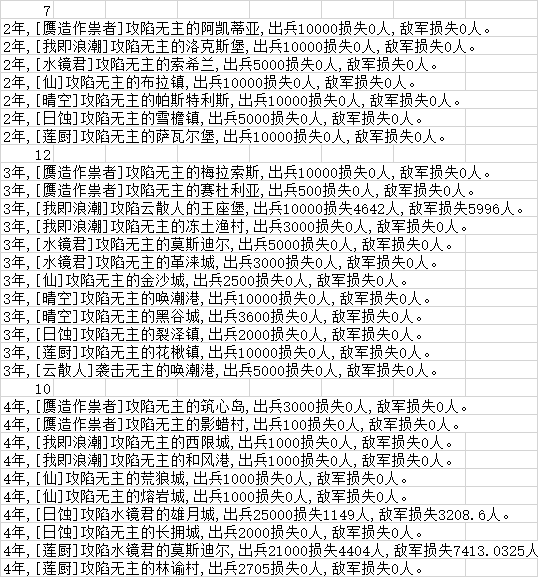 7
2年,[赝造作祟者]攻陷无主的阿凯蒂亚,出兵10000损失0人,敌军损失0人。
2年,[我即浪潮]攻陷无主的洛克斯堡,出兵10000损失0人,敌军损失0人。
2年,[水镜君]攻陷无主的索希兰,出兵5000损失0人,敌军损失0人。
2年,[仙]攻陷无主的布拉镇,出兵10000损失0人,敌军损失0人。
2年,[晴空]攻陷无主的帕斯特利斯,出兵10000损失0人,敌军损失0人。
2年,[日蚀]攻陷无主的雪檐镇,出兵5000损失0人,敌军损失0人。
2年,[莲厨]攻陷无主的萨瓦尔堡,出兵10000损失0人,敌军损失0人。
12
3年,[赝造作祟者]攻陷无主的梅拉索斯,出兵10000损失0人,敌军损失0人。
3年,[赝造作祟者]攻陷无主的赛杜利亚,出兵500损失0人,敌军损失0人。
3年,[我即浪潮]攻陷云散人的王座堡,出兵10000损失4642人,敌军损失5996人。
3年,[我即浪潮]攻陷无主的冻土渔村,出兵3000损失0人,敌军损失0人。
3年,[水镜君]攻陷无主的莫斯迪尔,出兵5000损失0人,敌军损失0人。
3年,[水镜君]攻陷无主的革涞城,出兵3000损失0人,敌军损失0人。
3年,[仙]攻陷无主的金沙城,出兵2500损失0人,敌军损失0人。
3年,[晴空]攻陷无主的唤潮港,出兵10000损失0人,敌军损失0人。
3年,[晴空]攻陷无主的黑谷城,出兵3600损失0人,敌军损失0人。
3年,[日蚀]攻陷无主的裂泽镇,出兵2000损失0人,敌军损失0人。
3年,[莲厨]攻陷无主的花楸镇,出兵10000损失0人,敌军损失0人。
3年,[云散人]袭击无主的唤潮港,出兵5000损失0人,敌军损失0人。
10
4年,[赝造作祟者]攻陷无主的筑心岛,出兵3000损失0人,敌军损失0人。
4年,[赝造作祟者]攻陷无主的影蜡村,出兵100损失0人,敌军损失0人。
4年,[我即浪潮]攻陷无主的西限城,出兵1000损失0人,敌军损失0人。
4年,[我即浪潮]攻陷无主的和风港,出兵1000损失0人,敌军损失0人。
4年,[仙]攻陷无主的荒狼城,出兵1000损失0人,敌军损失0人。
4年,[仙]攻陷无主的熔岩城,出兵1000损失0人,敌军损失0人。
4年,[日蚀]攻陷水镜君的雄月城,出兵25000损失1149人,敌军损失3208.6人。
4年,[日蚀]攻陷无主的长拥城,出兵2000损失0人,敌军损失0人。
4年,[莲厨]攻陷水镜君的莫斯迪尔,出兵21000损失4404人,敌军损失7413.0325人
4年,[莲厨]攻陷无主的林谕村,出兵2705损失0人,敌军损失0人。